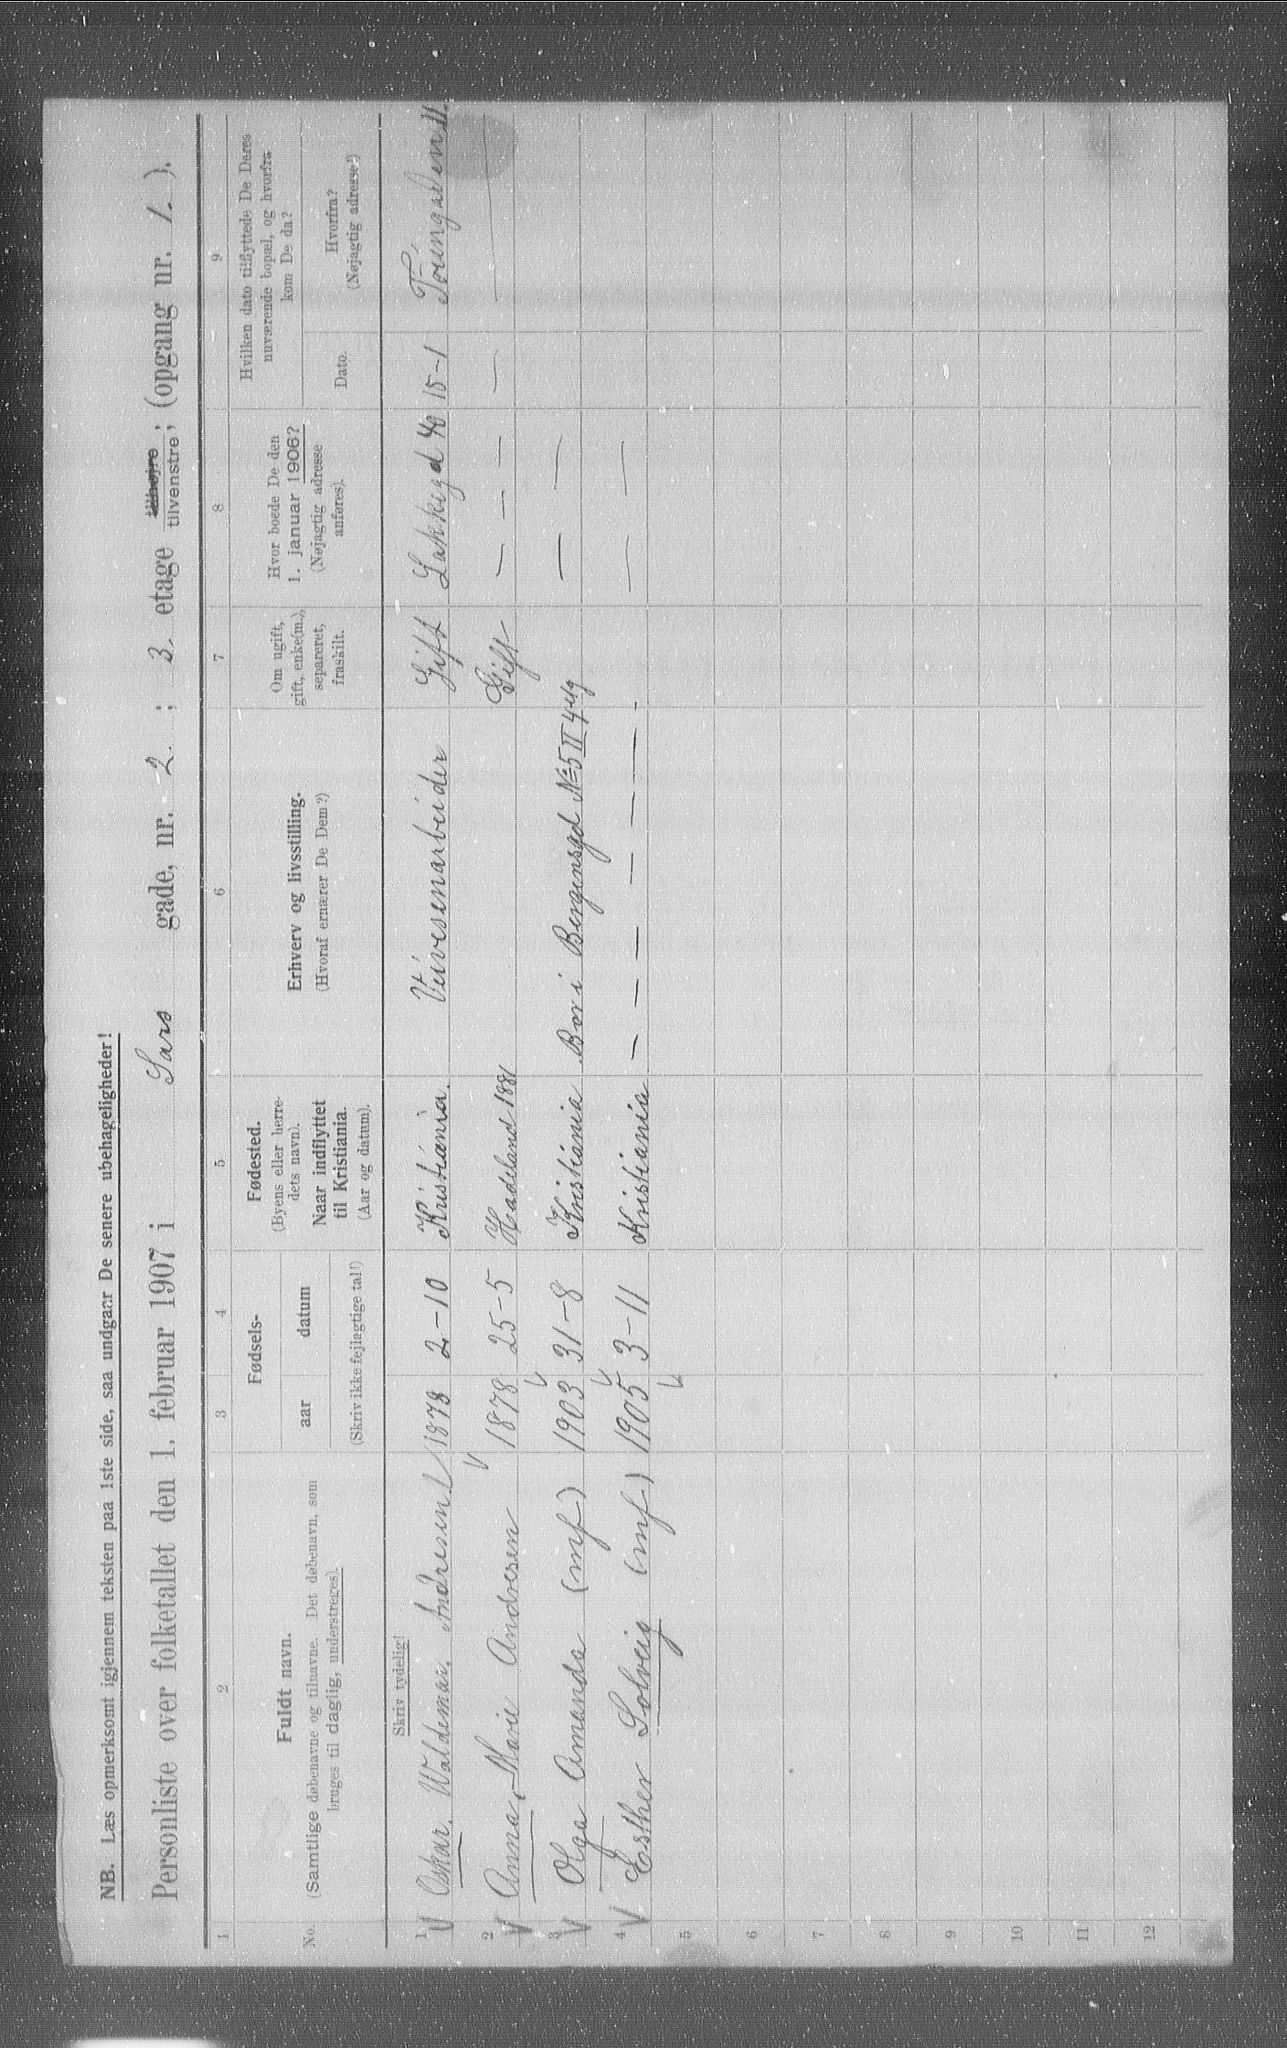 NB. Læs opmerksomt igjennem teksten paa 1ste side, saa undgaar De senere ubehageligheder!
Personliste over folketallet den 1. februar 1907 i Sars gade, nr. 2 ; 3. etage tilhøjre tilvenstre; (opgang nr. 1. ).
1 2 3 4 5 6 7 8 9
No.
Fuldt navn.
(Samtlige døbenavne og tilnavne. Det døbenavn, som
bruges til daglig, understreges).
Fødsels-
aar datum
(Skriv ikke fejlagtige tal!)
Fødested.
(Byens eller herre-
dets navn).
Naar indflyttet
til Kristiania.
(Aar og datum).
Erhverv og livsstilling.
(Hvoraf ernærer De Dem?)
Om ugift,
gift, enke(m.),
separeret,
fraskilt.
Hvor boede De den
1. januar 1906?
(Nøjagtig adresse
anføres).
Hvilken dato tilflyttede De Deres
nuværende bopæl, og hvorfra
kom De da?
Dato.
Hvorfra?
(Nøjagtig adresse!)
Skriv tydelig!
1 Oskar. Waldemar. Andresen 1878 2-10 Kristiania. Veivesenarbeider Gift 15-1
2 Anna, Marie Andresen 1878 25-5 Hadeland 1881 Gift — — — — —
3 Olga Amanda (mf) 1903 31-8 Kristiania Bor i No 5 II — —
4 Esther Solveig (mf) 1905 3-11 Kristiania — — — — — — — —
5
6
7
8
9
10
11
12